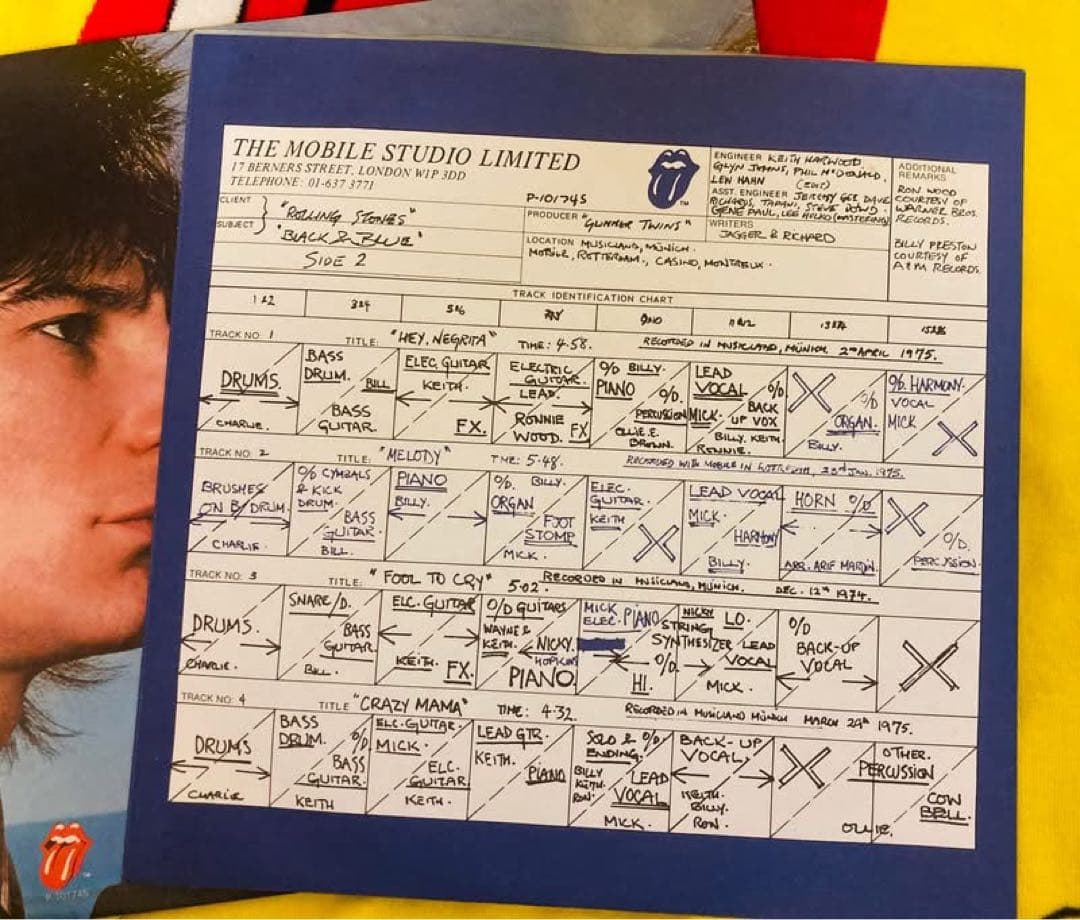 THE MOBILE STUDIO LIMITED
17 BERNERS STREET, LONDON W1P 3DD
TELEPHONE: 01-637 3771
CLIENT
SUBJECT
"ROLLING STONES"
"BLACK & BLUE"
SIDE 2
P-101745
PRODUCER "GLIMMER TWINS"
LOCATION MUSICLAND, MUNICH.
MOBILE, ROTTERDAM, CASINO, MONTREUX.
ENGINEER KEITH HARWOOD
GLYN JOHNS, PHIL McDONALD,
LEW HAHN
ASST. ENGINEER JEREMY GEE DAVE
RICHARDS, TAPANI, STEVE DOWD
GENE PAUL, LEE HULKO (MASTERING)
WRITERS
JAGGER & RICHARD
ADDITIONAL
REMARKS
RON WOOD
COURTESY OF
WARNER BROS.
RECORDS.
BILLY PRESTON
COURTESY OF
A&M RECORDS.
TRACK IDENTIFICATION CHART
1&2 3&4 5&6 7&8 9&10 11&12 13&14 15&16
TRACK NO: 1 TITLE: "HEY, NEGRITA" TIME: 4.58. RECORDED IN MUSICLAND, MUNICH 2nd APRIL 1975.
DRUMS.
CHARLIE.
BASS
DRUM.
BILL
BASS
GUITAR.
ELEC GUITAR
KEITH.
FX.
ELECTRIC
GUITAR.
LEAD.
RONNIE
WOOD. FX
O/D BILLY.
PIANO
O/D.
PERCUSSION
OLLIE. E.
BROWN.
LEAD
VOCAL
MICK.
O/D
BACK
UP VOX
BILLY. KEITH.
RONNIE.
X
O/D
ORGAN.
BILLY.
O/D. HARMONY.
VOCAL
MICK
X
TRACK NO: 2 TITLE: "MELODY" TIME: 5.48. RECORDED WITH MOBILE IN ROTTERDAM, 23rd JAN. 1975.
BRUSHES
ON B/DRUM.
CHARLIE.
O/D CYMBALS
& KICK
DRUM.
BASS
GUITAR.
BILL.
PIANO
BILLY.
O/D. BILLY.
ORGAN
FOOT
STOMP
MICK.
ELEC.
GUITAR.
KEITH
X
LEAD VOCAL
MICK.
HARMONY
BILLY.
HORN O/D
ARR. ARIF MARDIN.
X
O/D.
PERCUSSION.
TRACK NO: 3 TITLE: "FOOL TO CRY" 5.02. RECORDED IN MUSICLAND, MUNICH. DEC. 12th 1974.
DRUMS.
CHARLIE.
SNARE/D.
BASS
GUITAR.
BILL.
ELC. GUITAR
KEITH. FX.
O/D GUITARS
WAYNE &
KEITH.
NICKY.
HOPKINS
PIANO
MICK
ELEC. PIANO
O/D.
HI.
NICKY
STRING
SYNTHESIZER
LO.
LEAD
VOCAL
MICK.
O/D
BACK-UP
VOCAL
X
TRACK NO: 4 TITLE "CRAZY MAMA" TIME: 4.32. RECORDED IN MUSICLAND MUNICH MARCH 29th 1975.
DRUMS
CHARLIE
BASS
DRUM.
O/D
BASS
GUITAR.
KEITH
ELC. GUITAR.
MICK.
ELC.
GUITAR
KEITH.
LEAD GTR.
KEITH.
PIANO
SOLO & O/D
ENDING.
BILLY
KEITH.
RON.
LEAD
VOCAL
MICK.
BACK-UP
VOCAL.
KEITH.
BILLY.
RON.
X
OLLIE.
OTHER.
PERCUSSION
COW
BELL.
K 101745